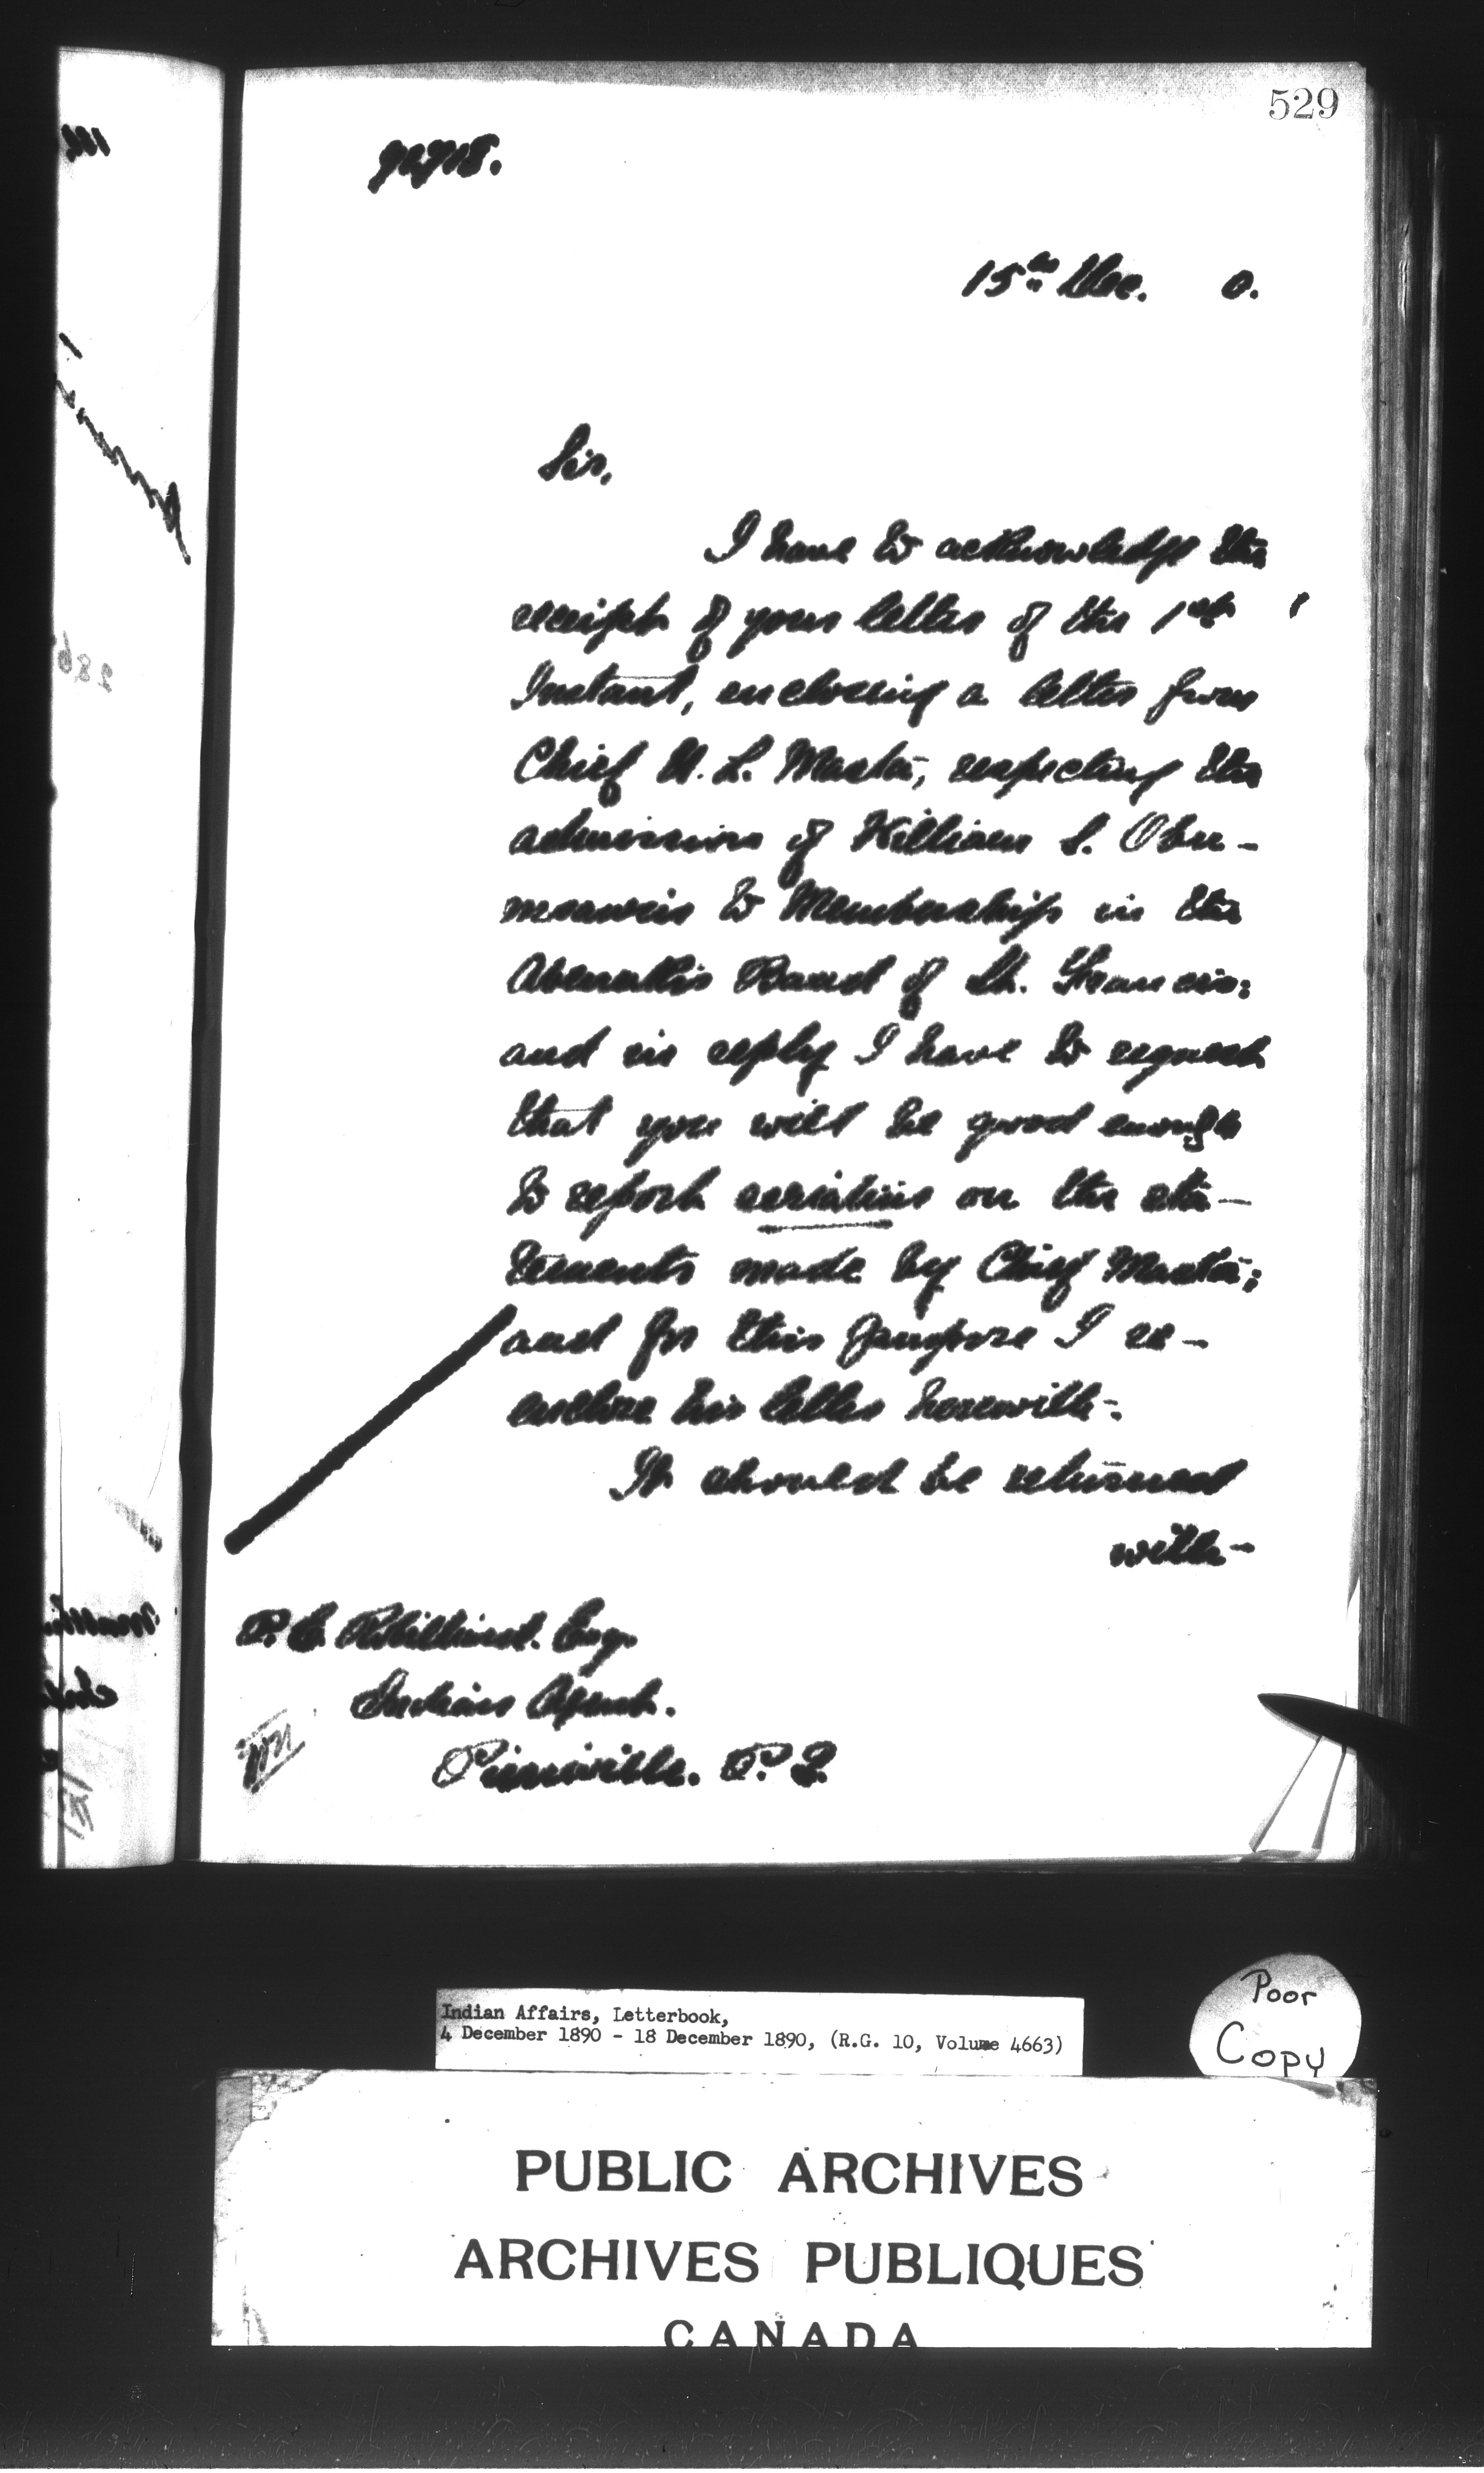 529
15th Dec. 0.
Sir,
I have to acknowledge the
receipt of your letter of the 1st
Instant, enclosing a letter from
Chief L. Masta, respecting the
admission of William S. Obu-
msawin to Membership in the
Abenakis Band of St. Francis:
and in reply I have to request
that you will be good enough
to report seriatim on the sta-
tements made by Chief Masta;
and for this purpose I re-
enclose his letter herewith.
It should be returned
with-
P. E. Robillard. Esq.
Indian Agent.
Pierreville. P. Q.
Indian Affairs, Letterbook,
4 December 1890 - 18 December 1890, (R.G. 10, Volume 4663)
Poor
Copy
PUBLIC ARCHIVES
ARCHIVES PUBLIQUES
CANADA